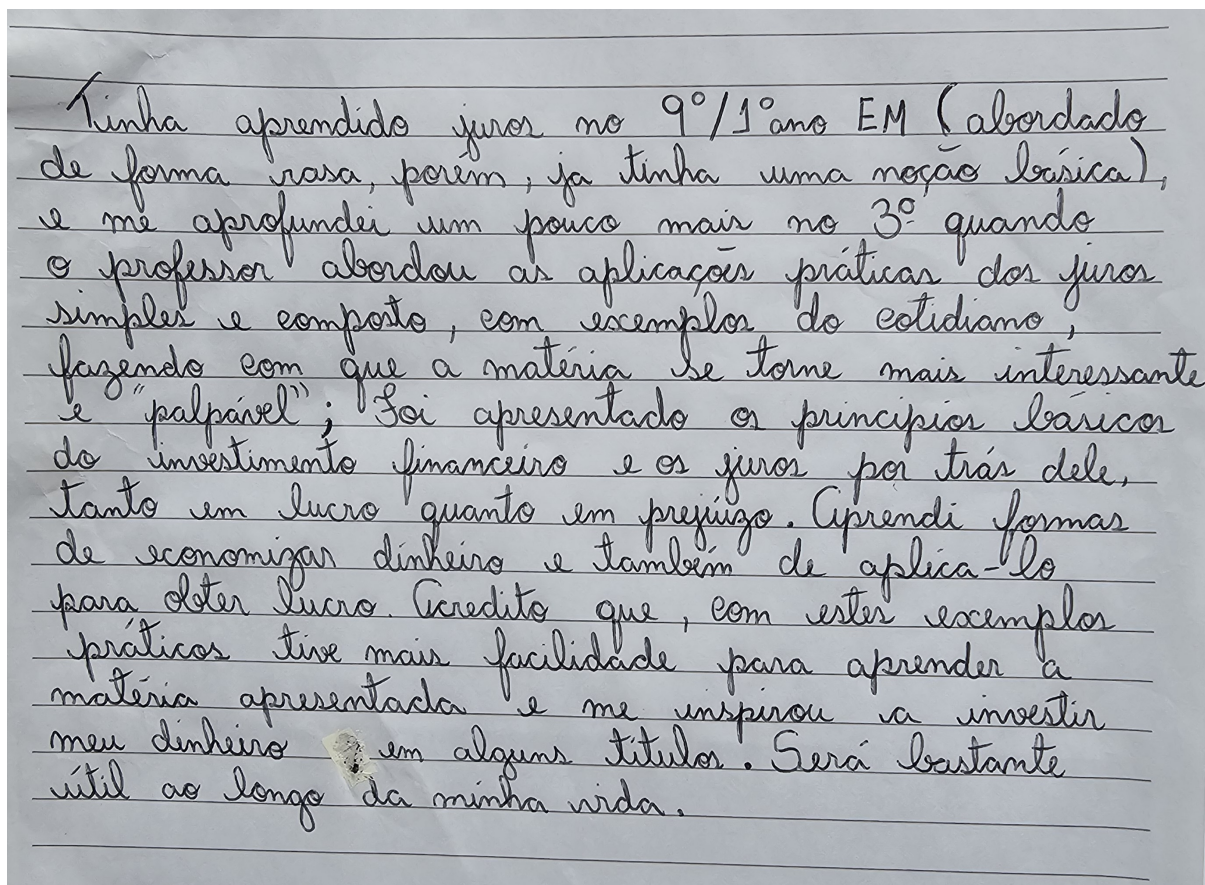 Tinha aprendido juros no 9º/1º ano EM (abordado
de forma rasa, porém, ja tinha uma noção básica),
e me aprofundei um pouco mais no 3º quando
o professor abordou as aplicações práticas dos juros
simples e composto, com exemplos do cotidiano,
fazendo com que a matéria se torne mais interessante
e "palpável"; Foi apresentado os princípios básicos
do investimento financeiro e os juros por trás dele,
tanto em lucro quanto em prejúizo. Aprendi formas
de economizar dinheiro e também de aplica-lo
para obter lucro. Acredito que, com estes exemplos
práticos tive mais facilidade para aprender a
matéria apresentada e me inspirou a investir
meu dinheiro em alguns titulos. Será bastante
útil ao longo da minha vida.